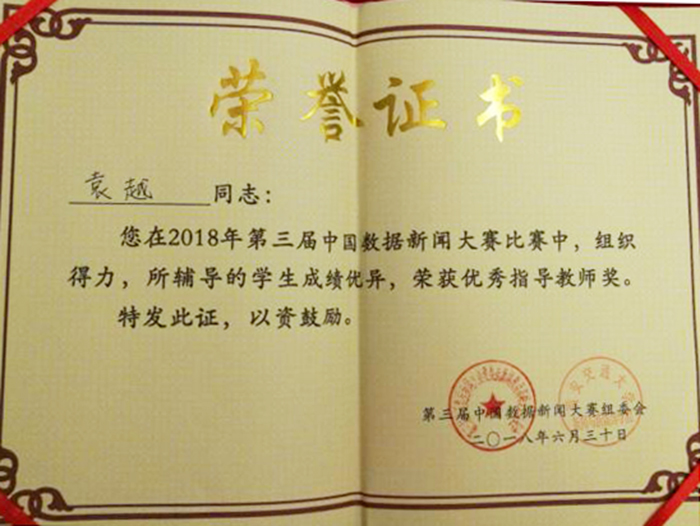 荣誉证书
袁越 同志：
您在2018年第三届中国数据新闻大赛比赛中，组织
得力，所辅导的学生成绩优异，荣获优秀指导教师奖。
特发此证，以资鼓励。
第三届中国数据新闻大赛组委会
二〇一八年六月三十日